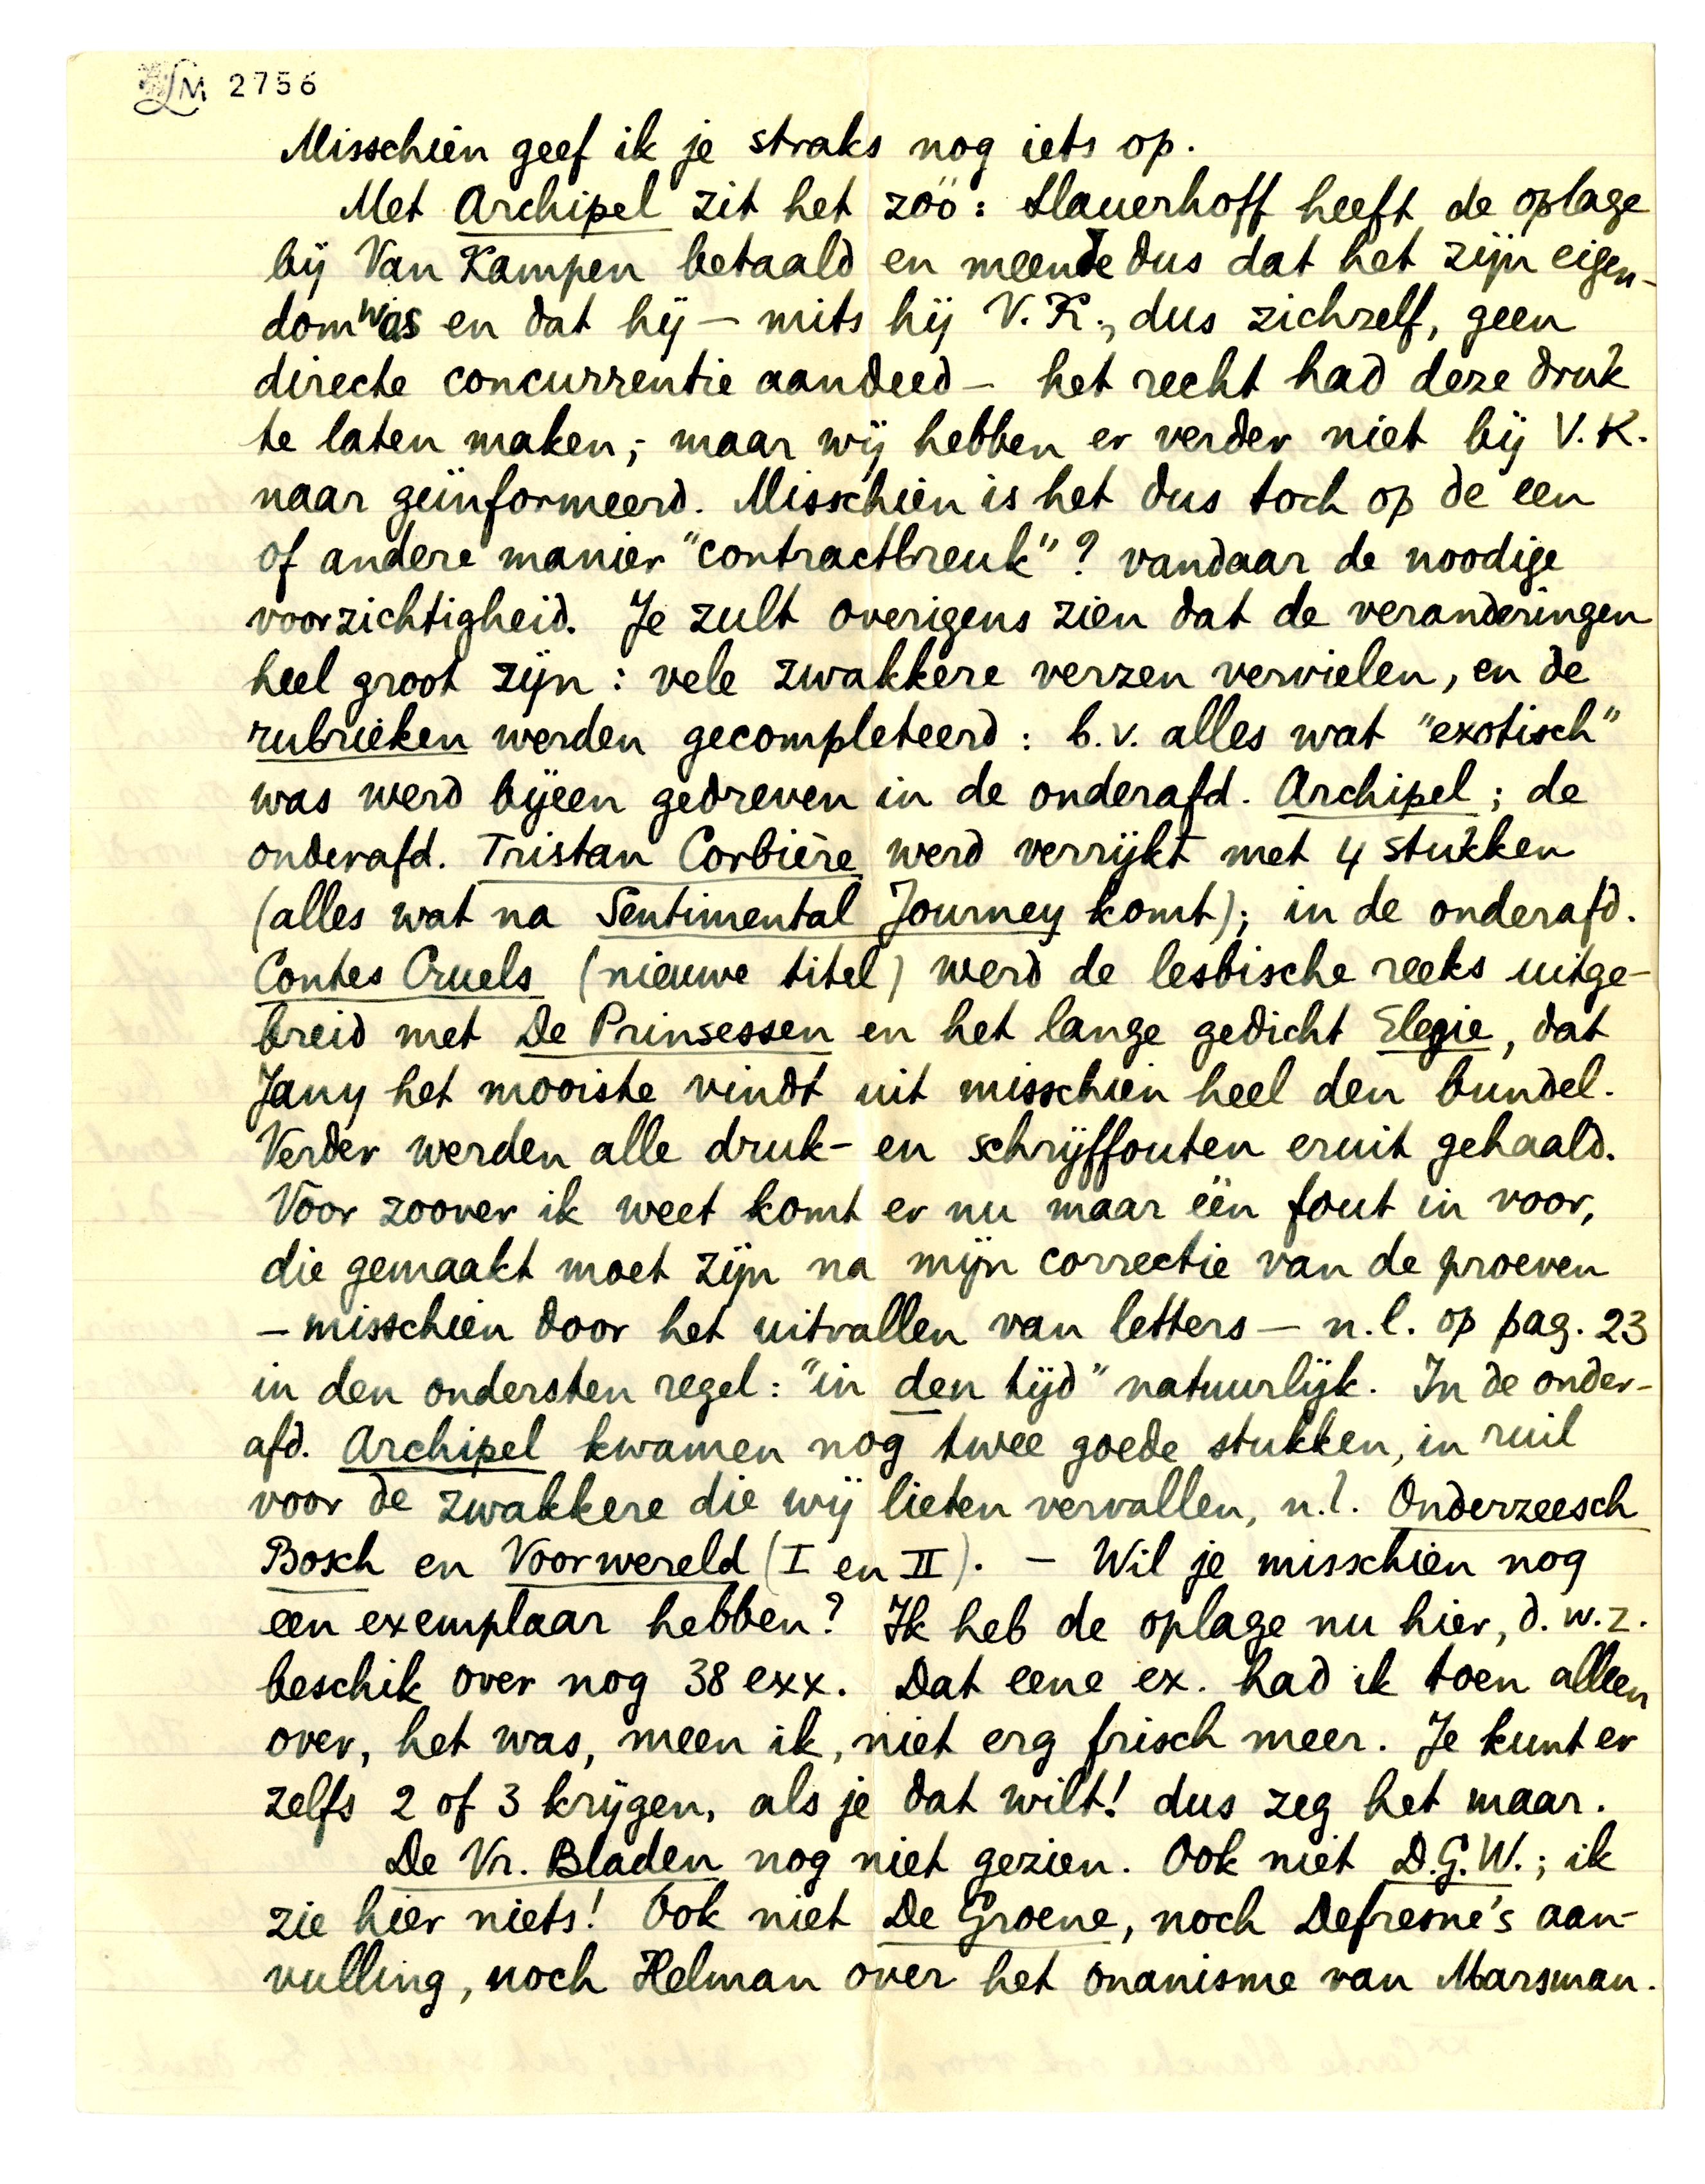 LM 2756
Misschien geef ik je straks nog iets op.
Met Archipel zit het zóó: Slauerhoff heeft de oplage
bij Van Kampen betaald en meende dus dat het zijn eigen-
dom was en dat hij — mits hij V.K., dus zichzelf, geen
directe concurrentie aandeed — het recht had deze druk
te laten maken; maar wij hebben er verder niet bij V.K.
naar geïnformeerd. Misschien is het dus toch op de een
of andere manier "contractbreuk"? vandaar de noodige
voorzichtigheid. Je zult overigens zien dat de veranderingen
heel groot zijn: vele zwakkere verzen vervielen, en de
rubrieken werden gecompleteerd: b.v. alles wat "exotisch"
was werd bijeen gedreven in de onderafd. Archipel; de
onderafd. Tristan Corbière werd verrijkt met 4 stukken
(alles wat na Sentimental Journey komt); in de onderafd.
Contes Cruels (nieuwe titel) werd de lesbische reeks uitge-
breid met De Prinsessen en het lange gedicht Elegie, dat
Jany het mooiste vindt uit misschien heel den bundel.
Verder werden alle druk- en schrijffouten eruit gehaald.
Voor zoover ik weet komt er nu maar één fout in voor,
die gemaakt moet zijn na mijn correctie van de proeven
— misschien door het uitvallen van letters — n.l. op pag. 23
in den ondersten regel: "in den tijd" natuurlijk. In de onder-
afd. Archipel kwamen nog twee goede stukken, in ruil
voor de zwakkere die wij lieten vervallen, n.l. Onderzeesch
Bosch en Voorwereld (I en II). — Wil je misschien nog
een exemplaar hebben? Ik heb de oplage nu hier, d.w.z.
beschik over nog 38 exx. Dat eene ex. had ik toen alleen
over, het was, meen ik, niet erg frisch meer. Je kunt er
zelfs 2 of 3 krijgen, als je dat wilt! dus zeg het maar.
De Vr. Bladen nog niet gezien. Ook niet D.G.W.; ik
zie hier niets! Ook niet De Groene, noch Defresne's aan-
vulling, noch Helman over het onanisme van Marsman.